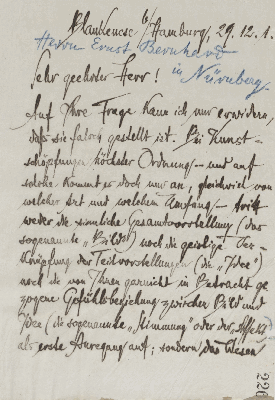 Blankenese b/Hamburg, 29.12.1.
Herrn Ernst Bernhard
in Nürnberg.
Sehr geehrter Herr!
Auf Ihre Frage kann ich nur erwidern,
daß sie falsch gestellt ist. Bei Kunst-
schöpfungen höchster Ordnung – und auf
solche kommt es doch nur an, gleichviel von
welcher Art und welchem Umfang – tritt
weder die sinnliche Gesamtvorstellung (das
sogenannte „Bild") noch die geistige Ver-
knüpfung der Teilvorstellungen (die „Idee")
noch die von Ihnen garnicht in Betracht ge-
zogene Gefühlsbeziehung zwischen Bild und
Idee (die sogenannte „Stimmung" oder der „Affekt")
als erste Anregung auf; sondern das Wesen
220